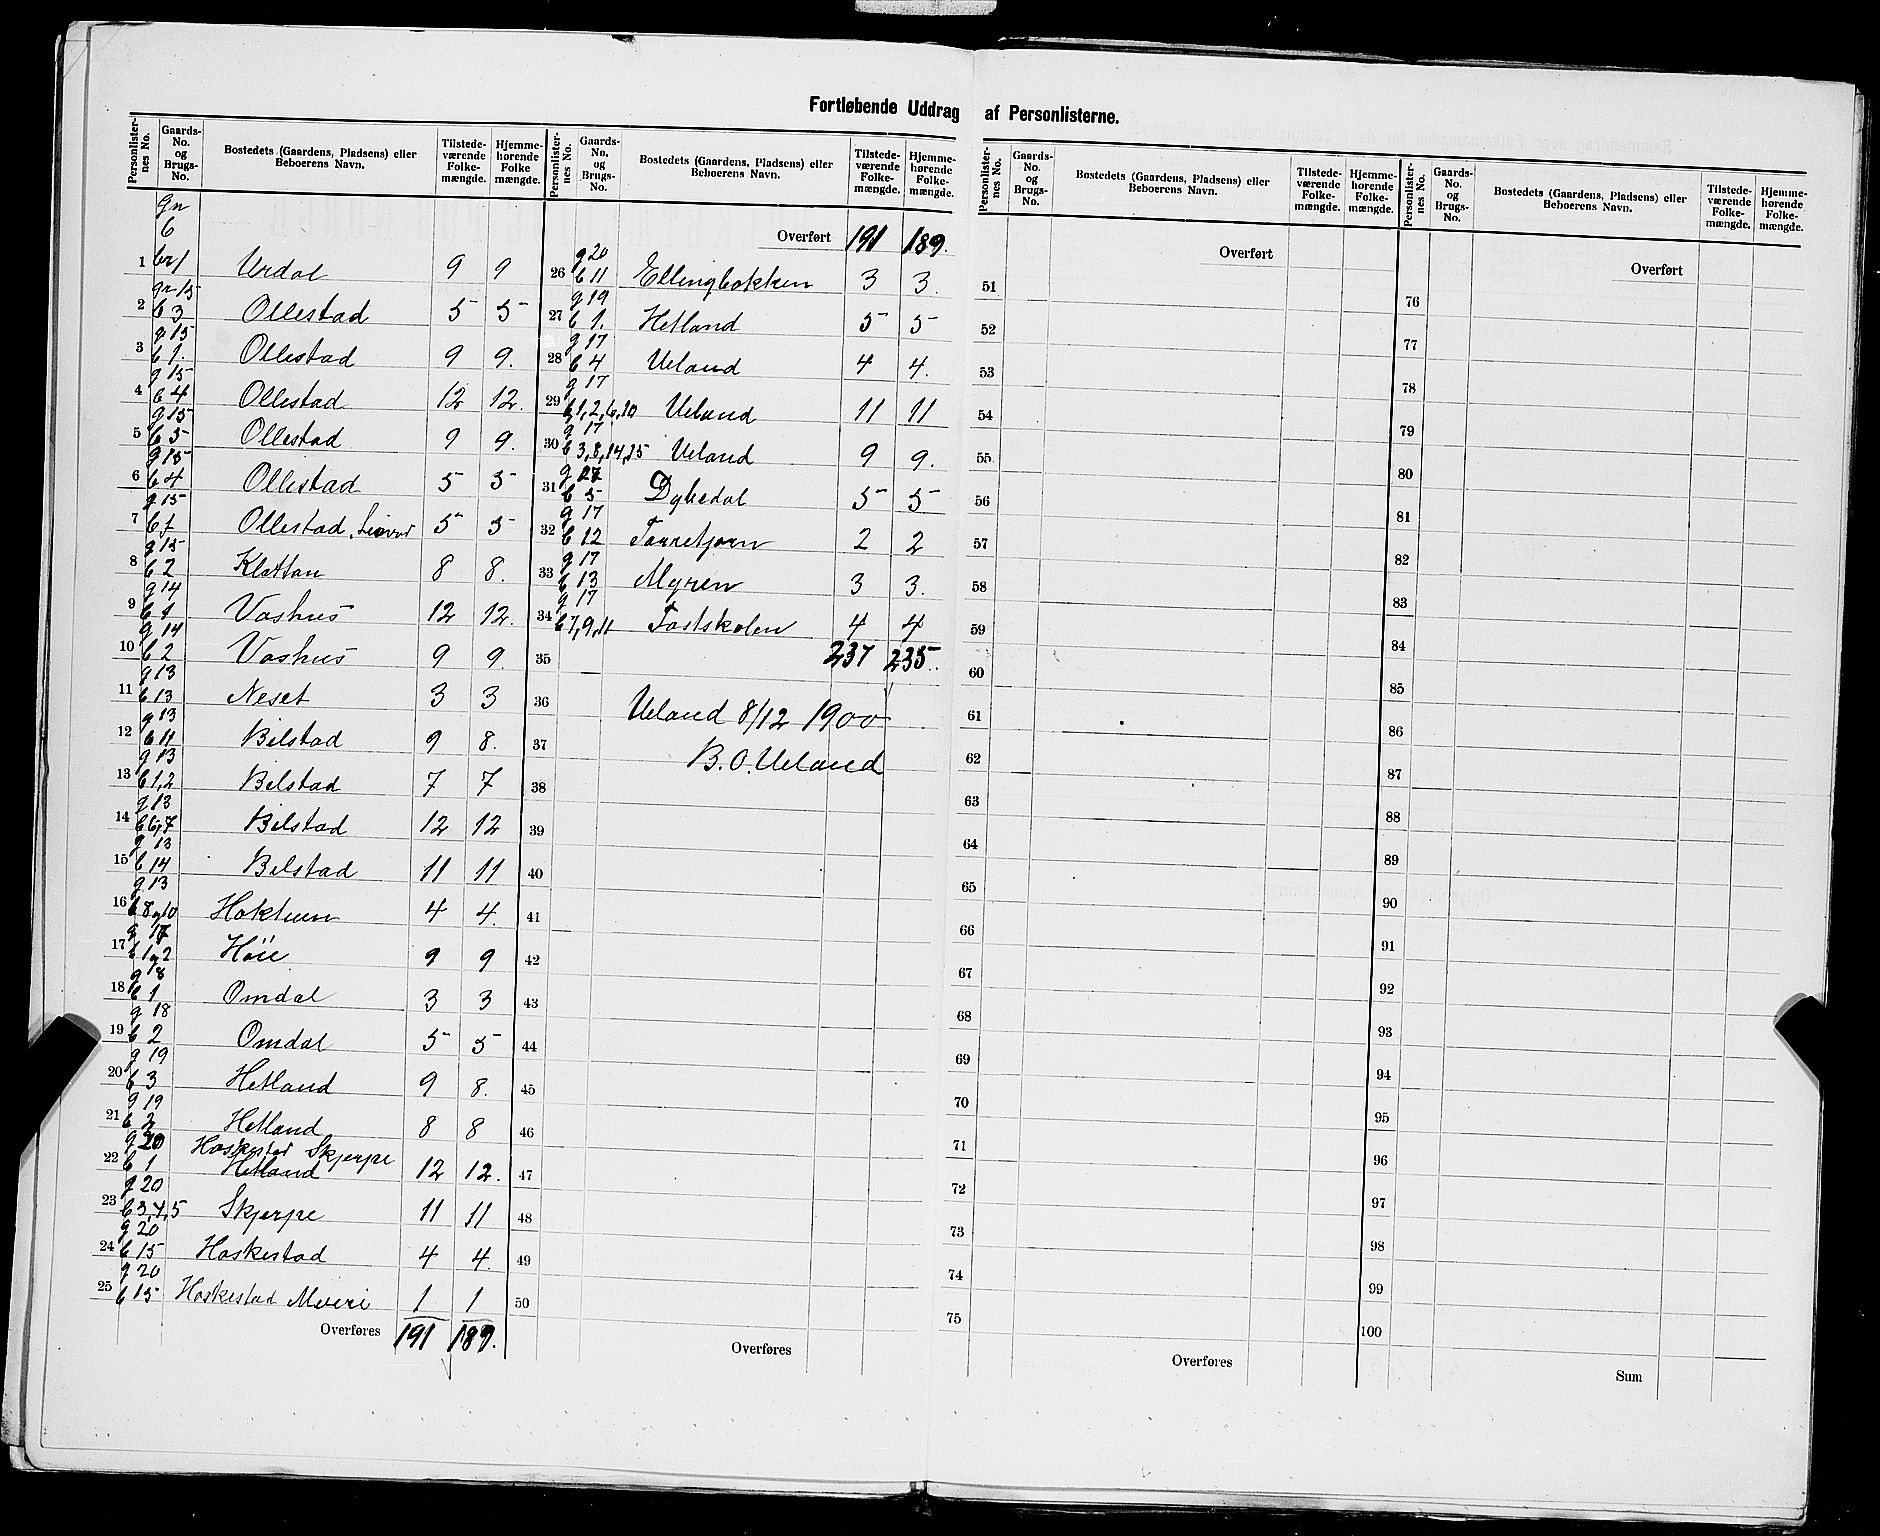 Fortløbende Uddrag af Personlisterne.
Personlisternes No. Gaards-No. og Brugs-No. Bostedets (Gaardens, Pladsens) eller Beboerens Navn. Tilstedeværende Folkemængde. Hjemmehørende Folkemængde.
gn 6
1 br 1 Urdal 9 9
2 gn 15 b 3 Ollestad 5 5
3 g 15 b 1. Ollestad 9 9.
4 g 15 b 4 Ollestad 12 12.
5 g 15 b 5 Ollestad 9 9.
6 g 15 b 4 Ollestad 5 5
7 g 15 Ollestad 5 5
8 g 15 b 2 Klettan 8 8.
9 g 14 b 1 Vashus 12 12.
10 g 14 b 2 Vashus 9 9.
11 g 13 b 13 Neset 3 3
12 g 13 b 11 Bilstad 9 8.
13 g 13 b 1,2 Bilstad 7 7
14 g 13 b 6,7 Bilstad 12 12
15 g 13 b 14 Bilstad 11 11
16 g 13 b 8 og 10 4 4.
17 g 17 b 1 og 2 Höie 9 9
18 g 18 b 1 Omdal 3 3
19 g 18 b 2 Omdal 5 5
20 g 19 b 3 Hetland 9 8.
21 g 19 b 2 Hetland 8 8
22 g 20 b 1 Haskestad Skjerpe Hetland 12 12.
23 g 20 Skjerpe 11 11
24 g 20 b 15 Haskestad 4 4.
25 g 20 b 15 Haskestad 1 1
Overføres 191 189.
Personlisternes No. Gaards-No. og Brugs-No. Bostedets (Gaardens, Pladsens) eller Beboerens Navn. Tilstedeværende Folkemængde. Hjemmehørende Folkemængde.
Overført 191 189.
26 g 20 b 11 Ellingbakken 3 3.
27 g 19 b 1. Hetland 5 5
28 g 17 b 4 Ueland 4 4.
29 g 17 b 1,2,6,10 Ueland 11 11
30 g 17 b 3,8,14,15 Ueland 9 9.
31 g 17 b 5 Dybedal 5 5
32 g 17 b 12 Tarretjørn 2 2
33 g 17 b 13 Myren 3 3.
34 g 17 b 7,9,11 Fastskolen 4 4
35 237 235.
36 Ueland 8/12 1900
37 B. O. Ueland
38
39
40
41
42
43
44
45
46
47
48
49
50
Overføres
Personlisternes No. Gaards-No. og Brugs-No. Bostedets (Gaardens, Pladsens) eller Beboerens Navn. Tilstedeværende Folkemængde. Hjemmehørende Folkemængde.
Overført
51
52
53
54
55
56
57
58
59
60
61
62
63
64
65
66
67
68
69
70
71
72
73
74
75
Overføres
Personlisternes No. Gaards-No. og Brugs-No. Bostedets (Gaardens, Pladsens) eller Beboerens Navn. Tilstedeværende Folkemængde. Hjemmehørende Folkemængde.
Overført
76
77
78
79
80
81
82
83
84
85
86
87
88
89
90
91
92
93
94
95
96
97
98
99
100
Sum